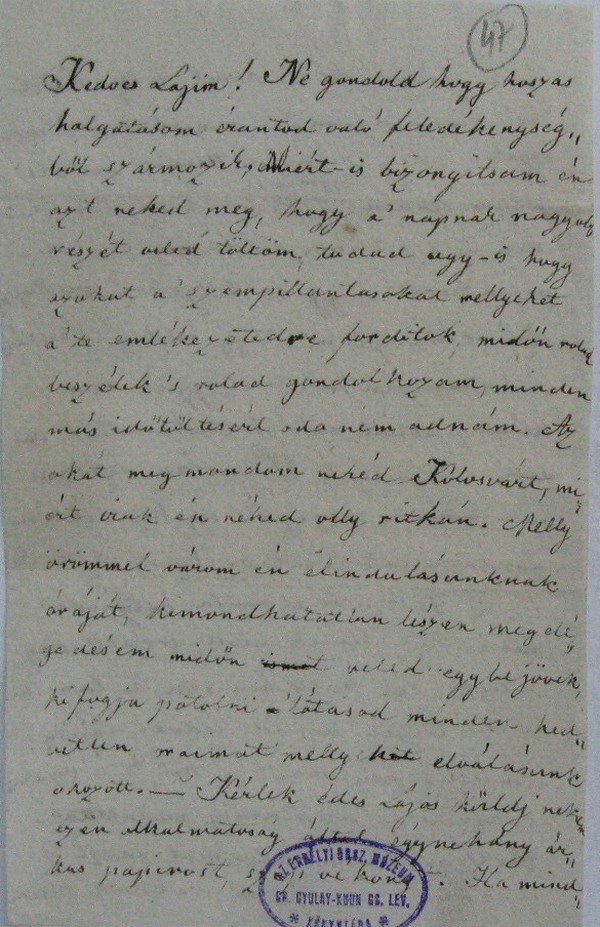 47
Kedves Lajim! Ne gondold hogy hoszas
halgatásom erántod való feledékenység„
ből szármozik, Miért-is bizongitsam én
azt neked meg, hogy a' napnak nagyobb
részét veled töltöm, tudod ugy-is hogy
azokat a' szempillantasokat mellyeket
a' te emlékezetedre forditok, midőn rolad
beszélek 's rolad gondolkozam, minden
más időtöltésért oda nem adnám. Az
okát megmondom nehéd Kolosvárt, mi„
ért irak én néked olly ritkán. Melly
örömmel várom én élindulásunknak
óráját, kimondhatatlan lészen megelé„
gedésem midőn veled egybejövek,
ki fogja pótolni látásod minden ked„
vetlen oraimat melly elválásunk
okozott. — Kérlek édes Lajos küldj nekem
ezen alkalmatoság által égynehány ár„
kus papirost, vekonyt. Ha mind„
AZ ERDÉLYI ORSZ. MÚZEUM
GR. GYULAY-KUUN GS. LEV.
* KÖNYVTÁRA *